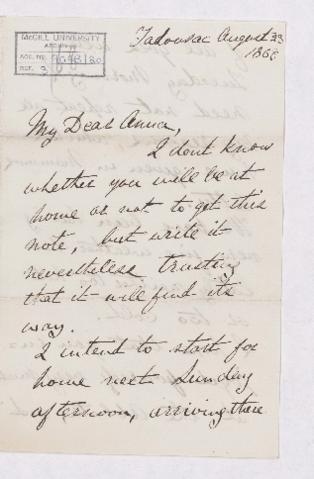 McGILL UNIVERSITY
ARCHIVES
ACC. NO.
REF.
Tadousac August 23
My Dear Anna,
I dont know
whether you will be at
home or not to get this
note, but write it
nevertheless trusting
that it will find its
way.
I intend to start for
home next Sunday
afternoon, arriving there